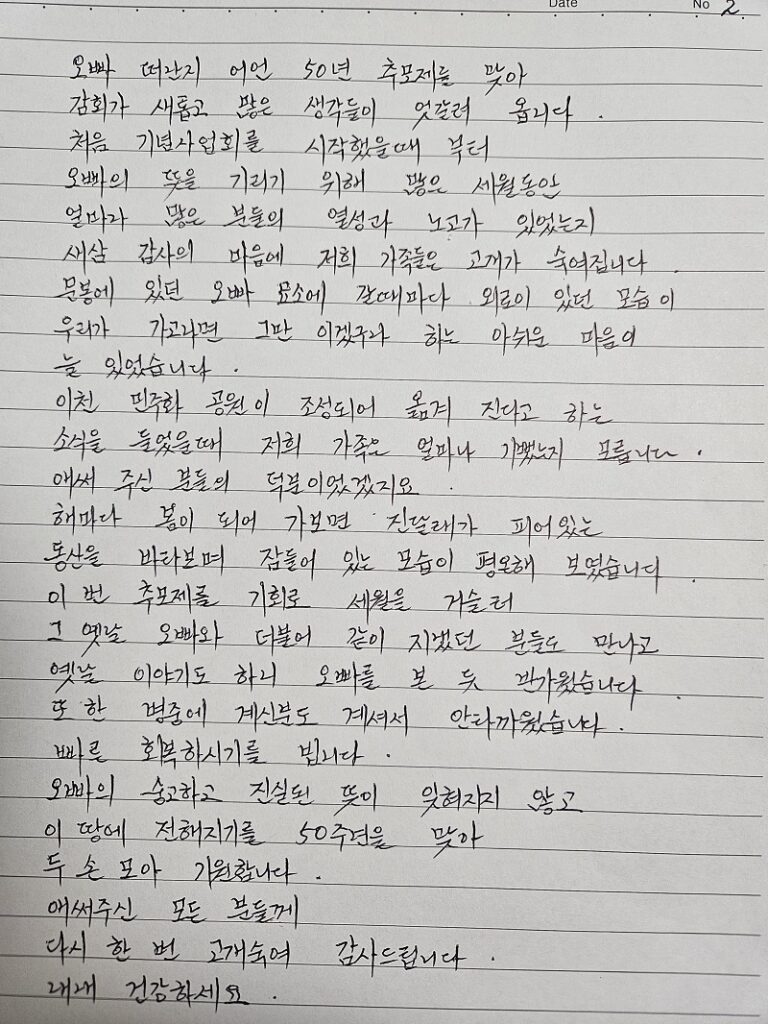 Date No 2
오빠 떠난지 어언 50년 추모제를 맞아
감회가 새롭고 많은 생각들이 엇갈려 옵니다.
처음 기념사업회를 시작했을때 부터
오빠의 뜻을 기리기 위해 많은 세월동안
얼마나 많은 분들의 열성과 노고가 있었는지
새삼 감사의 마음에 저희 가족들은 고개가 숙여집니다.
문봉에 있던 오빠 묘소에 갈때마다 외로이 있던 모습이
우리가 가고나면 그만 이겠구나 하는 아쉬운 마음이
늘 있었습니다.
이천 민주화 공원이 조성되어 옮겨 진다고 하는
소식을 들었을때 저희 가족은 얼마나 기뻤는지 모릅니다.
애써 주신 분들의 덕분이었겠지요.
해마다 봄이 되어 가보면 진달래가 피어있는
동산을 바라보며 잠들어 있는 모습이 평온해 보였습니다.
이 번 추모제를 기회로 세월을 거슬러
그 옛날 오빠와 더불어 같이 지냈던 분들도 만나고
옛날 이야기도 하니 오빠를 본 듯 반가웠습니다.
또 한 병중에 계신분도 계셔서 안타까웠습니다.
빠른 회복하시기를 빕니다.
오빠의 숭고하고 진실된 뜻이 잊혀지지 않고
이 땅에 전해지기를 50주년을 맞아
두 손 모아 기원합니다.
애써주신 모든 분들께
다시 한 번 고개숙여 감사드립니다.
내내 건강하세요.